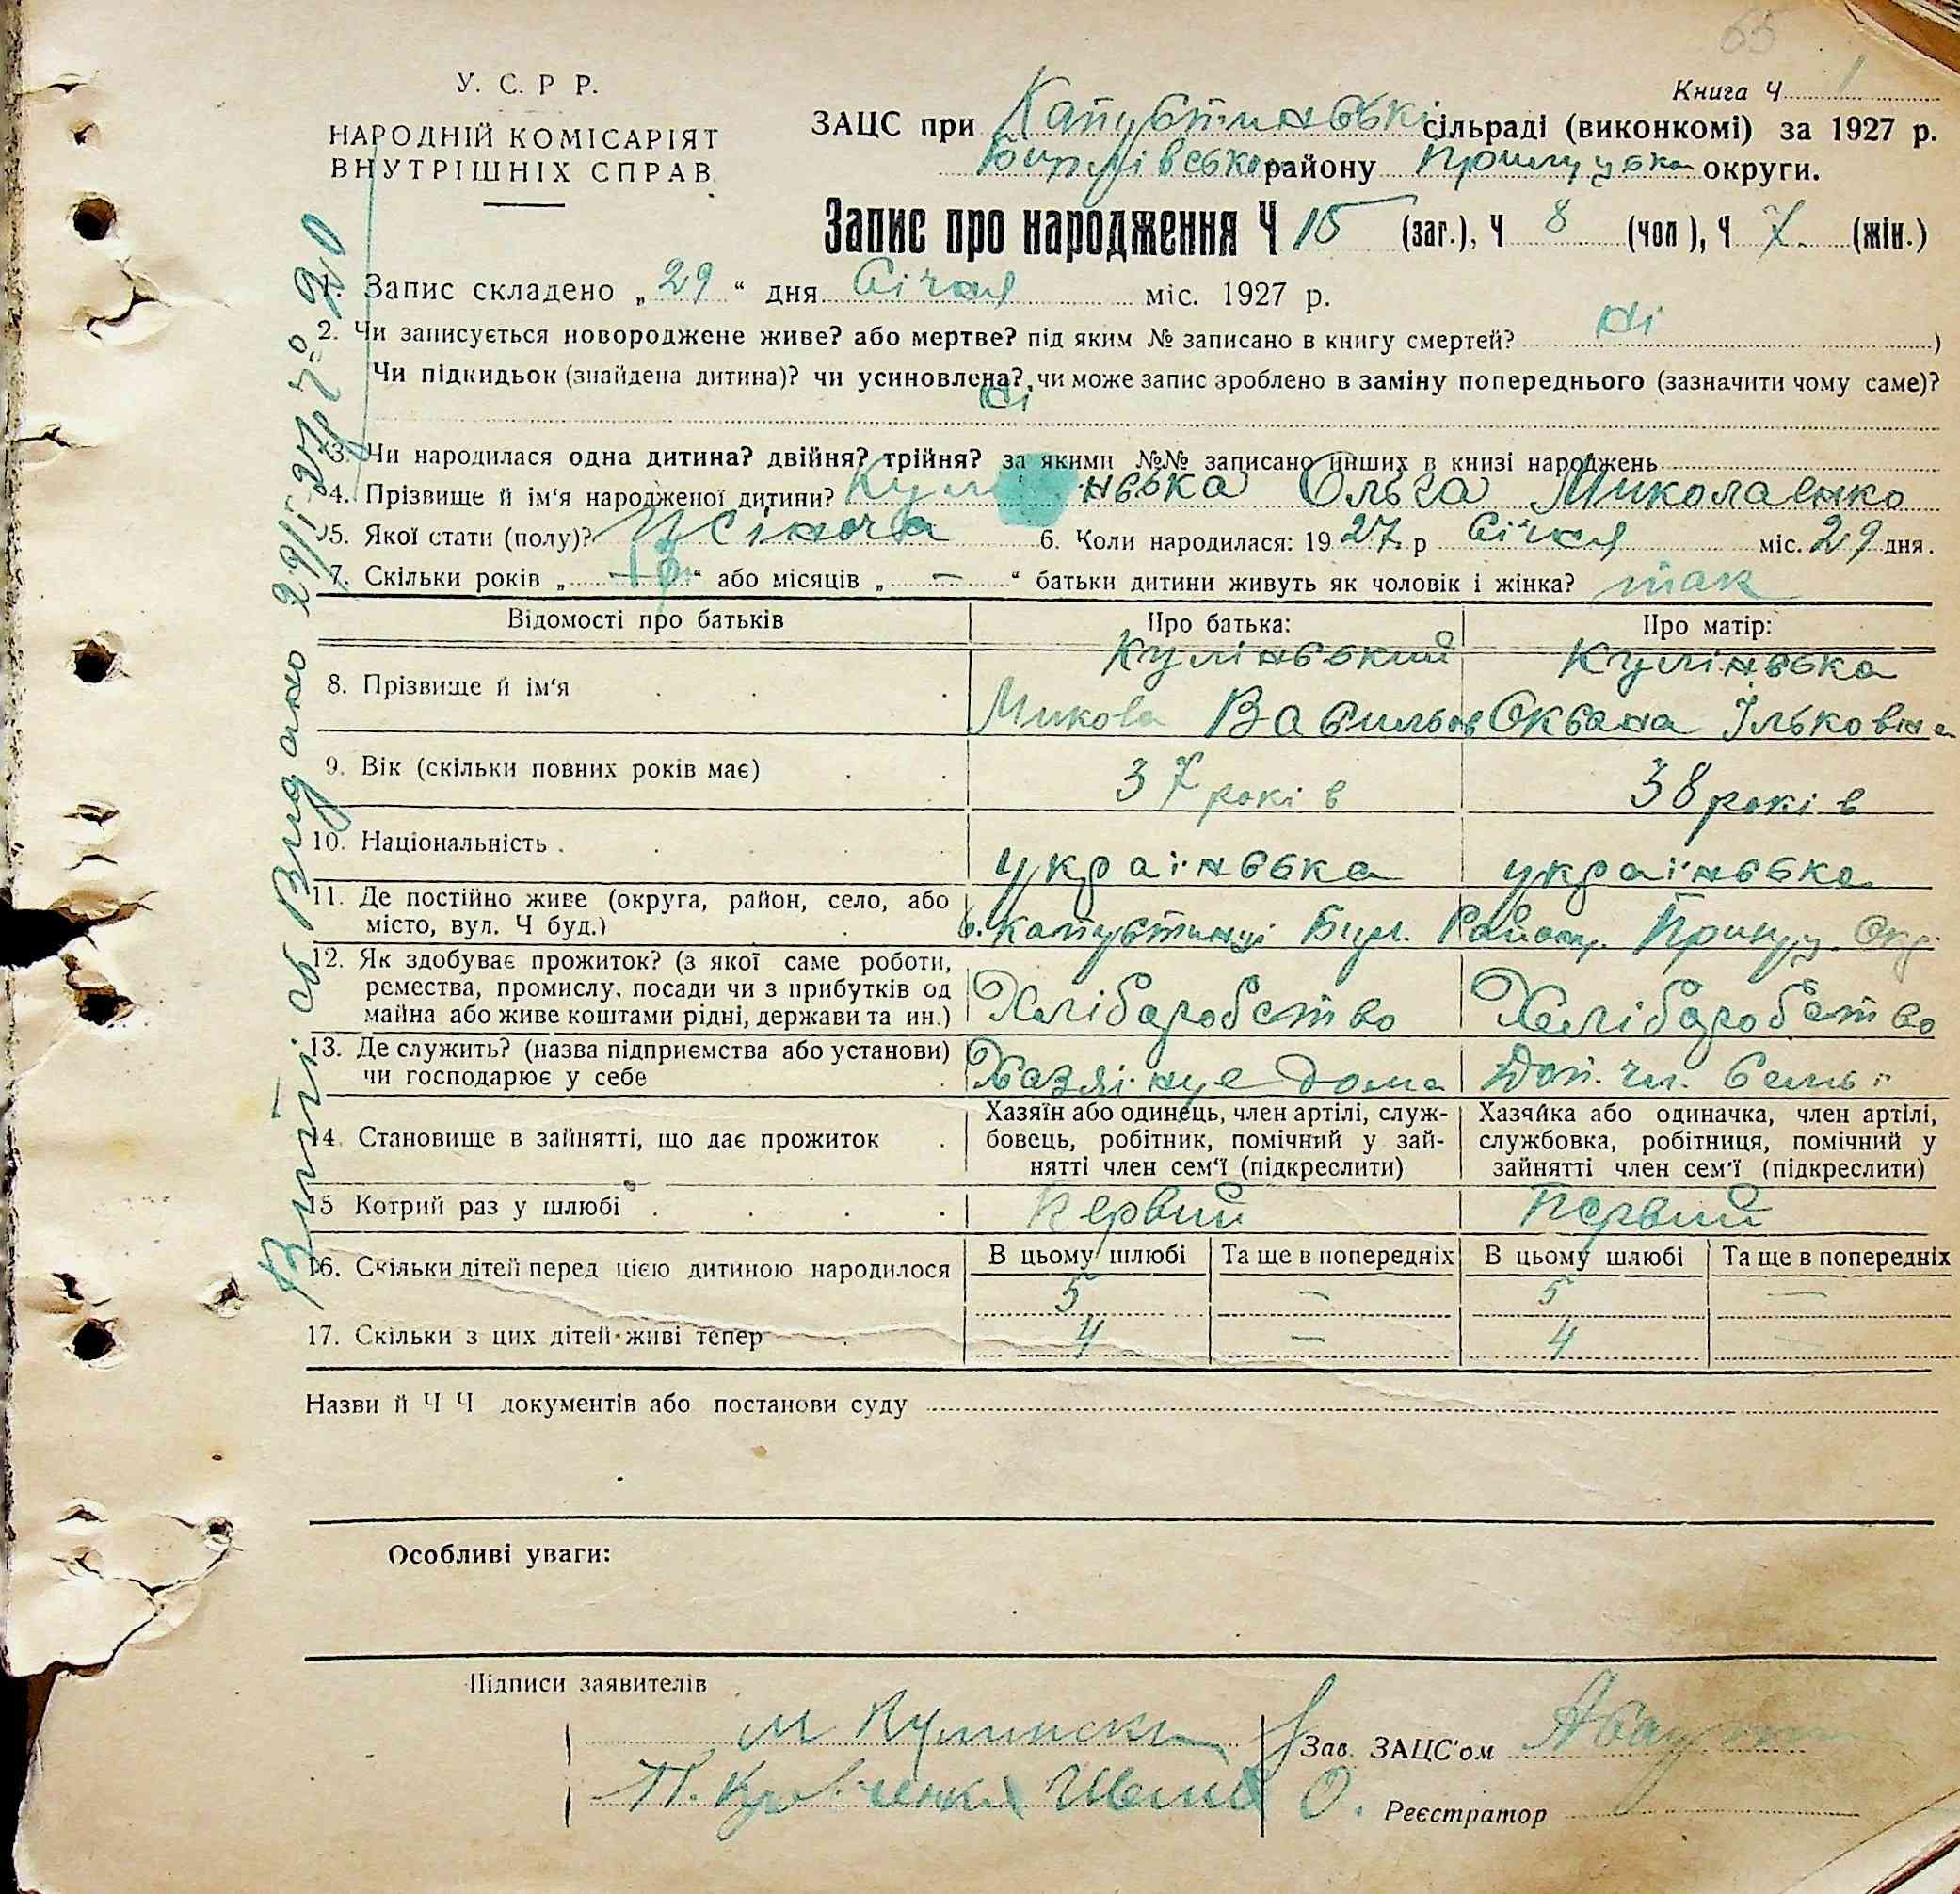 65
У. С. Р Р.
НАРОДНІЙ КОМІСАРІЯТ
ВНУТРІШНІХ СПРАВ.
Книга Ч 1
ЗАЦС при Капустинські сільраді (виконкомі) за 1927 р.
району Прилуцька округи.
Запис про народження Ч 15 (заг.), Ч 8 (чол), Ч 7. (жін.)
1. Запис складено „ 29 “ дня Січня міс. 1927 р.
2. Чи записується новороджене живе? або мертве? під яким № записано в книгу смертей? Ні )
Чи підкидьок (знайдена дитина)? чи усиновлена?, чи може запис зроблено в заміну попереднього (зазначити чому саме)?
Ні
3. Чи народилася одна дитина? двійня? трійня? за якими №№ записано инших в книзі народжень
4. Прізвище й ім‘я народженої дитини? Кулінська Ольга
5. Якої стати (полу)? Жіноча 6. Коли народилася: 1927 р Січня міс. 29 дня.
7. Скільки років „ “ або місяців „ — “ батьки дитини живуть як чоловік і жінка? так
Відомості про батьків Про батька: Про матір:
8. Прізвище й ім‘я Кулінський Кулінська
Микола Васильов Оксана Ільковна
9. Вік (скільки повних років має) 37 років 38 років
10. Національність українська українська
11. Де постійно живе (округа, район, село, або
місто, вул. Ч буд.) с. Капустинці Бир. Району. Прилуц. Окр.
12. Як здобуває прожиток? (з якої саме роботи,
ремества, промислу, посади чи з прибутків од
майна або живе коштами рідні, держави та ин.) Хліборобство Хліборобство
13. Де служить? (назва підприємства або установи)
чи господарює у себе Хазяінує дома Доп. чл. семьї
14. Становище в зайнятті, що дає прожиток
Хазяїн або одинець, член артілі, служ-
бовець, робітник, помічний у зай-
нятті член сем‘ї (підкреслити)
Хазяйка або одиначка, член артілі,
службовка, робітниця, помічний у
зайнятті член сем‘ї (підкреслити)
15 Котрий раз у шлюбі Первий Первий
В цьому шлюбі Та ще в попередніх В цьому шлюбі Та ще в попередніх
16. Скільки дітей перед цією дитиною народилося 5 — 5 —
17. Скільки з цих дітей живі тепер 4 — 4 —
Назви й Ч Ч документів або постанови суду
Особливі уваги:
Підписи заявителів
М Кулински
Зав. ЗАЦС‘ом
П. Кравченко
Реєстратор